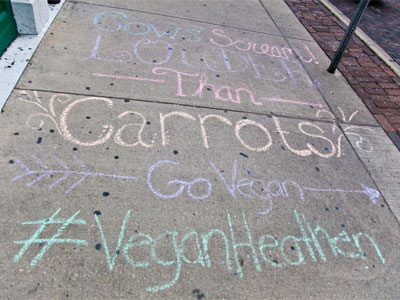 Cows Scream!
LOUDER
Than
Carrots
Go Vegan
#VeganHeathen